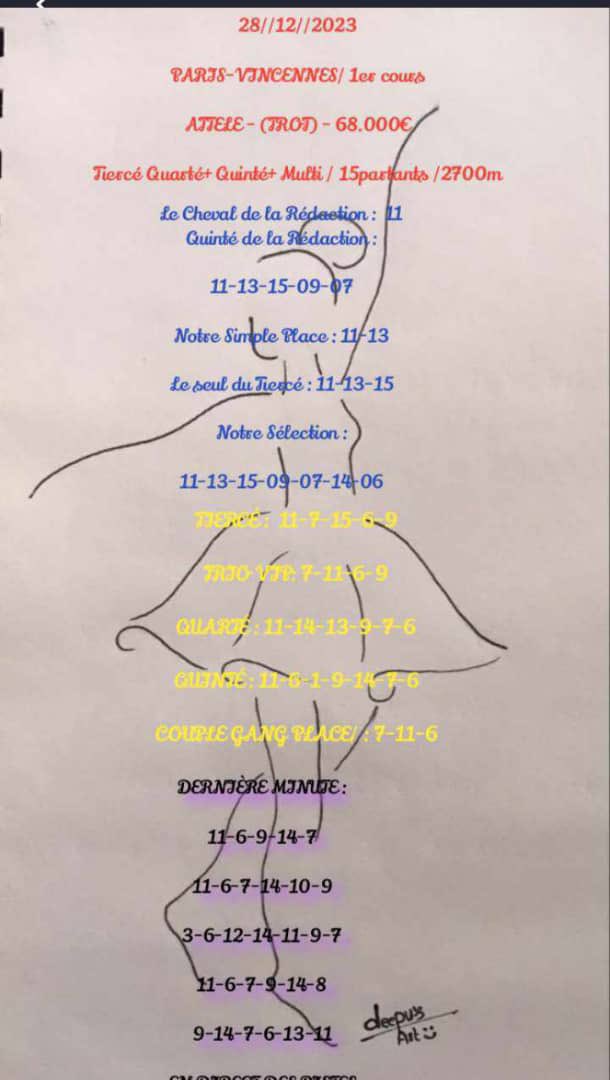 28//12//2023
PARIS-VINCENNES/ 1er cours
ATTELE - (TROT) - 68.000€
Tiercé Quarté+ Quinté+ Multi / 15partants /2700m
Le Cheval de la Rédaction : 11
Quinté de la Rédaction :
11-13-15-09-07
Notre Simple Place : 11-13
Le seul du Tiercé : 11-13-15
Notre Sélection :
11-13-15-09-07-14-06
TIERCÉ : 11-7-15-6-9
TRIO VIP: 7-11-6-9
QUARTÉ : 11-14-13-9-7-6
QUINTÉ : 11-6-1-9-14-7-6
COUPLE GANG PLACE/ : 7-11-6
DERNIÈRE MINUTE :
11-6-9-14-7
11-6-7-14-10-9
3-6-12-14-11-9-7
11-6-7-9-14-8
9-14-7-6-13-11
deepu's
Art